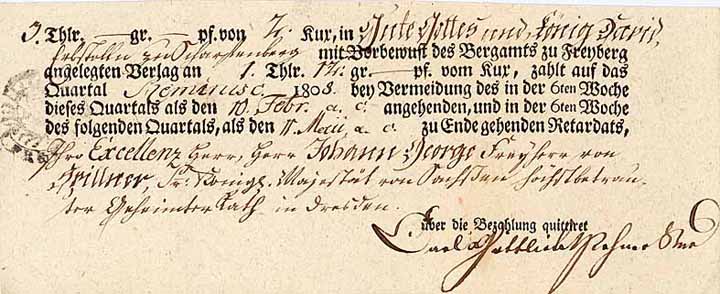 3. Thlr. — gr. — pf. von 2. Kux, in Güte Gottes und König David
Erbstolln zu Scharfenberg mit Vorbewust des Bergamts zu Freyberg
angelegten Verlag an 1. Thlr. 12. gr. — pf. vom Kux, zahlt auf das
Quartal Reminisc. 1808. bey Vermeidung des in der 6ten Woche
dieses Quartals als den 10. Febr. a. c. angehenden, und in der 6ten Woche
des folgenden Quartals, als den 11. Maii, a. c. zu Ende gehenden Retardats,
Ihro Excellenz Herr, Herr Johann George Freyherr von
Sr. Königl. Majestät von Sachßen höchstbetrau-
ter Geheimter Rath in Dresden.
über die Bezahlung quittiret
Carl Gottlieb